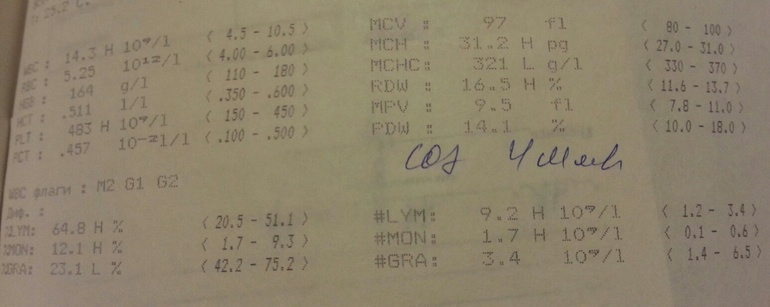 WBC : 14.3 H 10⁹/l ( 4.5 - 10.5 )
RBC : 5.25 10¹²/l ( 4.00 - 6.00 )
HGB : 164 g/l ( 110 - 180 )
HCT : .511 l/l ( .350 - .600 )
PLT : 483 H 10⁹/l ( 150 - 450 )
PCT : .457 10⁻²l/l ( .100 - .500 )
MCV : 97 fl ( 80 - 100 )
MCH : 31.2 H pg ( 27.0 - 31.0 )
MCHC: 321 L g/l ( 330 - 370 )
RDW : 16.5 H % ( 11.6 - 13.7 )
MPV : 9.5 fl ( 7.8 - 11.0 )
PDW : 14.1 % ( 10.0 - 18.0 )
СОЭ 4 мм/ч
WBC флаги : M2 G1 G2
Диф. :
%LYM: 64.8 H % ( 20.5 - 51.1 )
%MON: 12.1 H % ( 1.7 - 9.3 )
%GRA: 23.1 L % ( 42.2 - 75.2 )
#LYM: 9.2 H 10⁹/l ( 1.2 - 3.4 )
#MON: 1.7 H 10⁹/l ( 0.1 - 0.6 )
#GRA: 3.4 10⁹/l ( 1.4 - 6.5 )